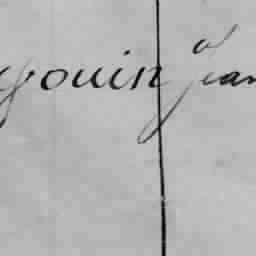 gouin Jean